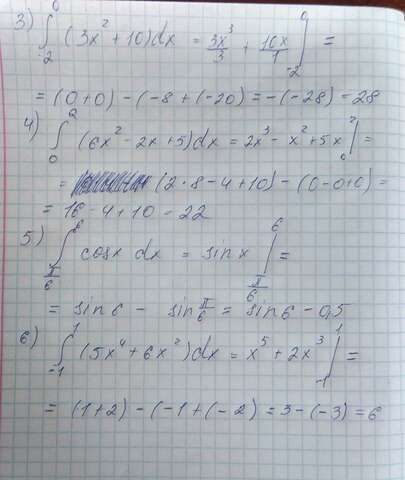 3) ∫₋₂⁰ (3x² + 10)dx = 3x³/3 + 10x/1 |₋₂⁰ =
= (0+0) - (-8 + (-20) = -(-28) = 28
4) ∫₀² (6x² - 2x + 5)dx = 2x³ - x² + 5x |₀² =
= (2·8 - 4 + 10) - (0 - 0 + 0) =
= 16 - 4 + 10 = 22
5) ∫ π/6 6 cosx dx = sinx | π/6 6 =
= sin6 - sin π/6 = sin6 - 0,5
6) ∫₋₁¹ (5x⁴ + 6x²)dx = x⁵ + 2x³ |₋₁¹ =
= (1+2) - (-1 + (-2) = 3 - (-3) = 6